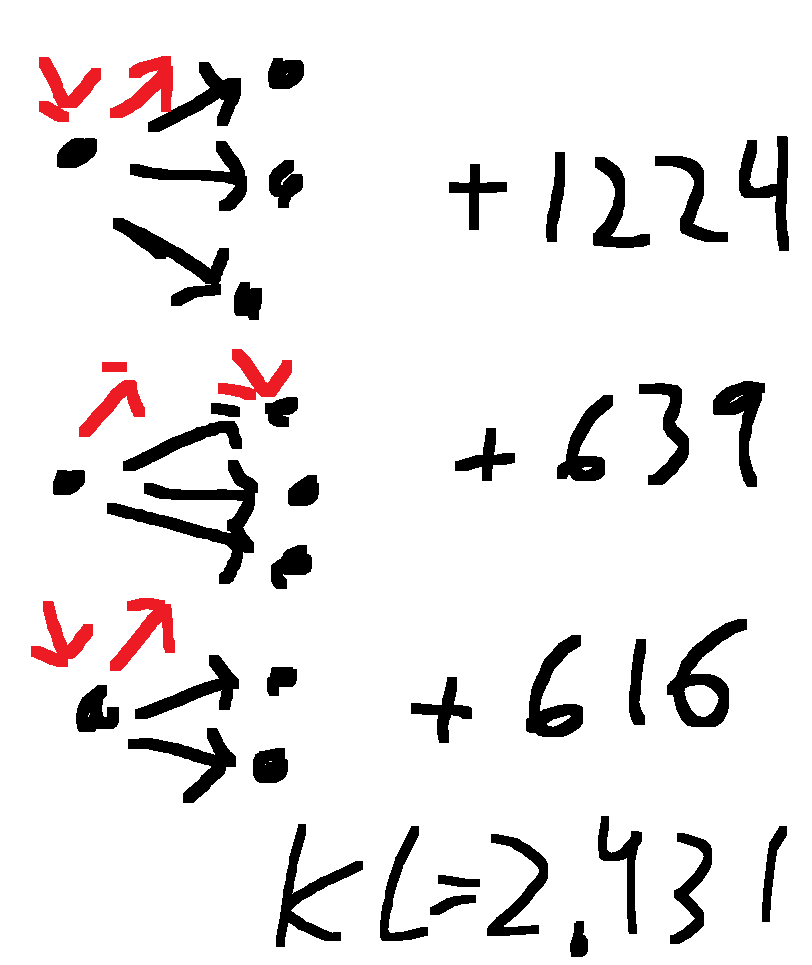 +1224
+639
+616
KL=2.431